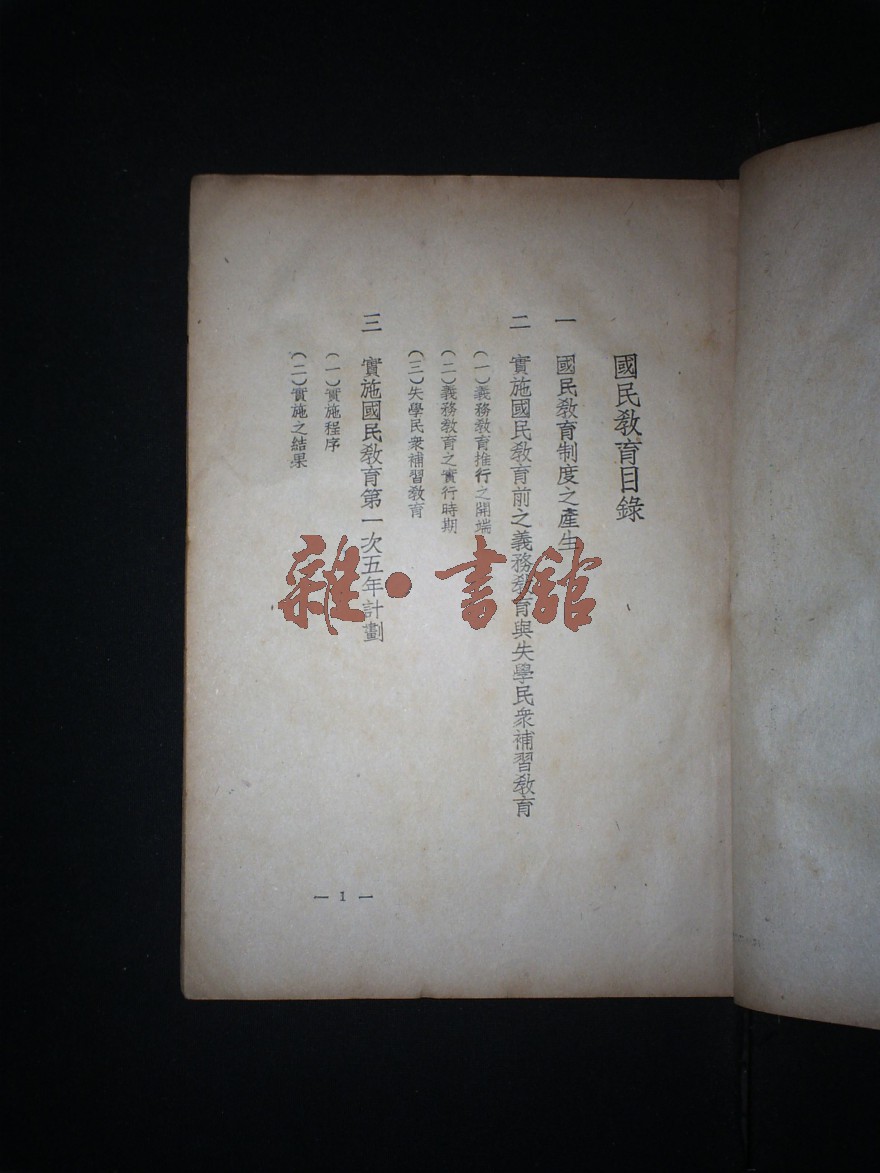 國民教育目錄
一　國民教育制度之產生
二　實施國民教育前之義務教育與失學民衆補習教育
(一)義務教育推行之開端
(二)義務教育之實行時期
(三)失學民衆補習教育
三　實施國民教育第一次五年計劃
(一)實施程序
(二)實施之結果
— 1 —
雜·書館